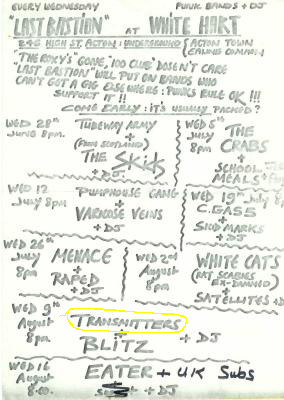 EVERY WEDNESDAY PUNK BANDS + DJ
"LAST BASTION" AT WHITE HART
246 HIGH ST. ACTON: UNDERGROUND { ACTON TOWN
EALING COMMON
"THE ROXY'S" GONE, 100 CLUB DOSEN'T CARE
"LAST BASTION" WILL PUT ON BANDS WHO
CAN'T GET A GIG ELSEWHERE: PUNKS RULE OK !!!
SUPPORT IT !!
COME EARLY: IT'S USUALLY PACKED?
WED 28TH
JUNE 8pm.
TUBEWAY ARMY
+
(FROM SCOTLAND)
THE SKIDS
+ DJ
WED 5TH
JULY
8pm
THE
CRABS
+
SCHOOL
MEALS +
WED 12
JULY 8pm
PUMPHOUSE GANG
+
VARICOSE VEINS
+ DJ
WED 19TH July 8p
C.GAS 5
+
SKID MARKS
+ DJ
WED 26TH
July
8pm
MENACE
+
RAPED
+ DJ
WED 2nd
August
8pm
WHITE CATS
(RAT SCABIES
EX-DAMNED)
+
SATELLITES + D
WED 9TH
August
8pm
TRANSMITTERS
+
BLITZ + DJ
WED 16
August
8.00.
EATER + UK Subs
+ DJ